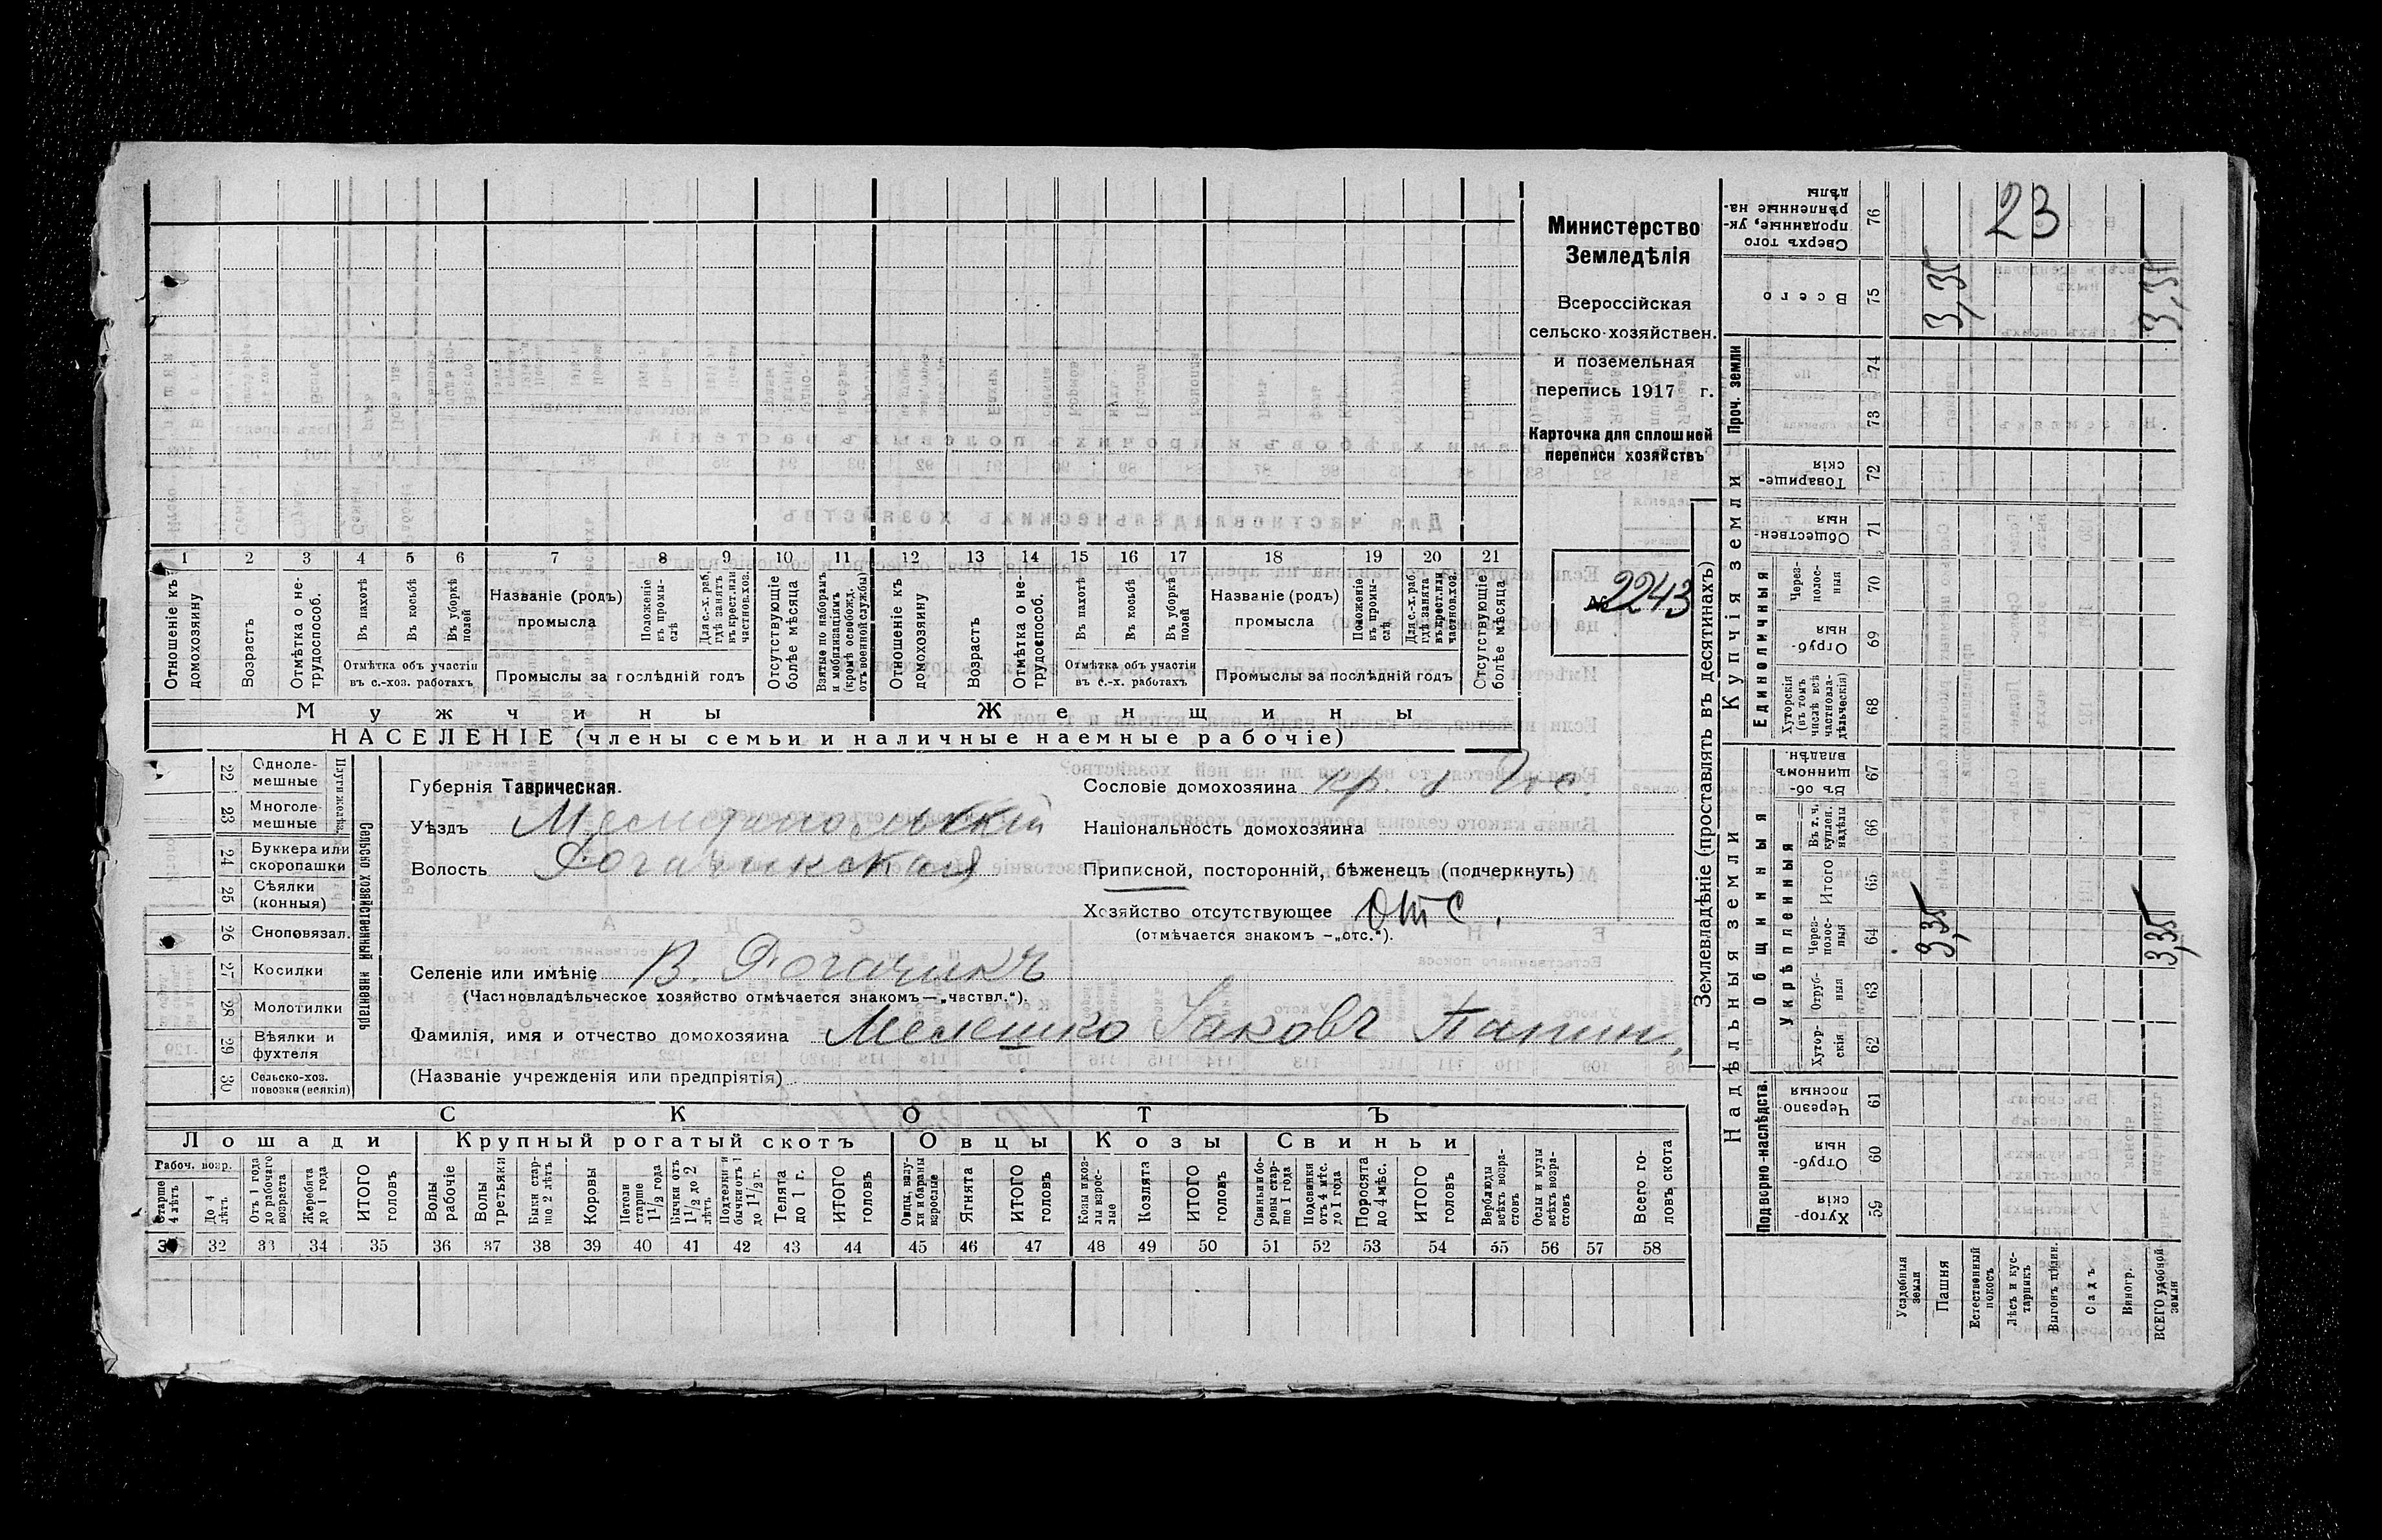 Министерство
Земледѣлія
Всероссійская
сельско-хозяйствен.
и поземельная
перепись 1917 г.
Карточка для сплошной
переписи хозяйствъ
№ 2243
23
1 2 3 4 5 6 7 8 9 10 11 12 13 14 15 16 17 18 19 20 21
Отношеніе къ домохозяину
Возрастъ
Отмѣтка о не-трудоспособ.
Въ пахотѣ
Въ косьбѣ
Въ уборкѣ полей
Отмѣтка объ участіи въ с.-хоз. работахъ
Названіе (родъ) промысла
Положеніе въ промы-слѣ
Для с.-х. раб, гдѣ занятъ въ крест. или частнов. хоз.
Промыслы за послѣдній годъ
Отсутствующіе болѣе мѣсяца
Взятые по наборамъ и мобилизаціямъ (кромѣ освобожд. отъ военной службы)
Отношеніе къ домохозяину
Возрастъ
Отмѣтка о не-трудоспособ.
Въ пахотѣ
Въ косьбѣ
Въ уборкѣ полей
Отмѣтка объ участіи въ с.-х. работахъ
Названіе (родъ) промысла
Положеніе въ промы-слѣ
Для с.-х. раб. гдѣ занята въ крест. или частнов. хоз.
Промыслы за послѣдній годъ
Отсутствующіе болѣе мѣсяца
Мужчины Женщины
НАСЕЛЕНІЕ (члены семьи и наличные наемные рабочіе)
Сельско-хозяйственный инвентарь
22 Одноле-мешные
23 Многоле-мешные
24 Буккера или скоропашки
25 Сѣялки (конныя)
26 Сноповязал.
27 Косилки
28 Молотилки
29 Вѣялки и фухтеля
30 Сельско-хоз. повозки (всякія)
Губернія Таврическая.
Уѣздъ Мелитопольскій
Волость Рогачикская
Селеніе или имѣніе В. Рогачикъ
(Частновладѣльческое хозяйство отмѣчается знакомъ—„частвл.“).
Фамилія, имя и отчество домохозяина Мелешко Іаковъ
(Названіе учрежденія или предпріятія)
Сословіе домохозяина кр.
Національность домохозяина
Приписной, посторонній, бѣженецъ (подчеркнуть)
Хозяйство отсутствующее отс.
(отмѣчается знакомъ —„отс.“).
СКОТЪ
Лошади Крупный рогатый скотъ Овцы Козы Свиньи
Рабоч. возр.
Старше 4 лѣтъ
До 4 лѣтъ
Отъ 1 года до рабочаго возраста
Жеребята до 1 года
ИТОГО головъ
Волы рабочіе
Волы третьяки
Быки стар-ше 2 лѣтъ
Коровы
Нетели старше 1½ года
Бычки отъ 1½ до 2 лѣтъ
Подтелки и бычки отъ 1 до 1½ г.
Телята до 1 г.
ИТОГО головъ
Овцы, валу-хи и бараны взрослые
Ягнята
ИТОГО головъ
Козы и коз-лы взрос-лые
Козлята
ИТОГО головъ
Свиньи и бо-ровы стар-ше 1 года
Подсвинки отъ 4 мѣс. до 1 года
Поросята до 4 мѣс.
ИТОГО головъ
Верблюды всѣхъ возра-стовъ
Ослы и мулы всѣхъ возра-стовъ
Всего го-ловъ скота
32 33 34 35 36 37 38 39 40 41 42 43 44 45 46 47 48 49 50 51 52 53 54 55 56 57 58
Землевладѣніе (проставлять въ десятинахъ)
Купчія земли
Надѣльныя земли
Сверхъ того проданные, ук-рѣпленные на-дѣлы 76
Всего 75 3,35 3,35
Проч. земли 74 73
Товарище-скія 72
Обществен-ныя 71
Единоличныя
Через-полос-ныя 70
Отруб-ныя 69
Хуторскія (въ томъ числѣ всѣ частновла-дѣльческія) 68
Общинныя
Въ об-щинномъ владѣн. 67
Укрѣпленныя
Въ т. ч. куплен. надѣлы 66
Итого 65
Через-полос-ныя 64 3,35 3,35
Отруб-ныя 63
Хутор-скія 62
Подворно-наслѣдств.
Черезпо-лосныя 61
Отруб-ныя 60
Хутор-скія 59
Усадебныя земли
Пашня
Естественный покосъ
Лѣсъ и кус-тарникъ
Выгонъ цѣлин.
Садъ
Виногр.
ВСЕГО удобной земли